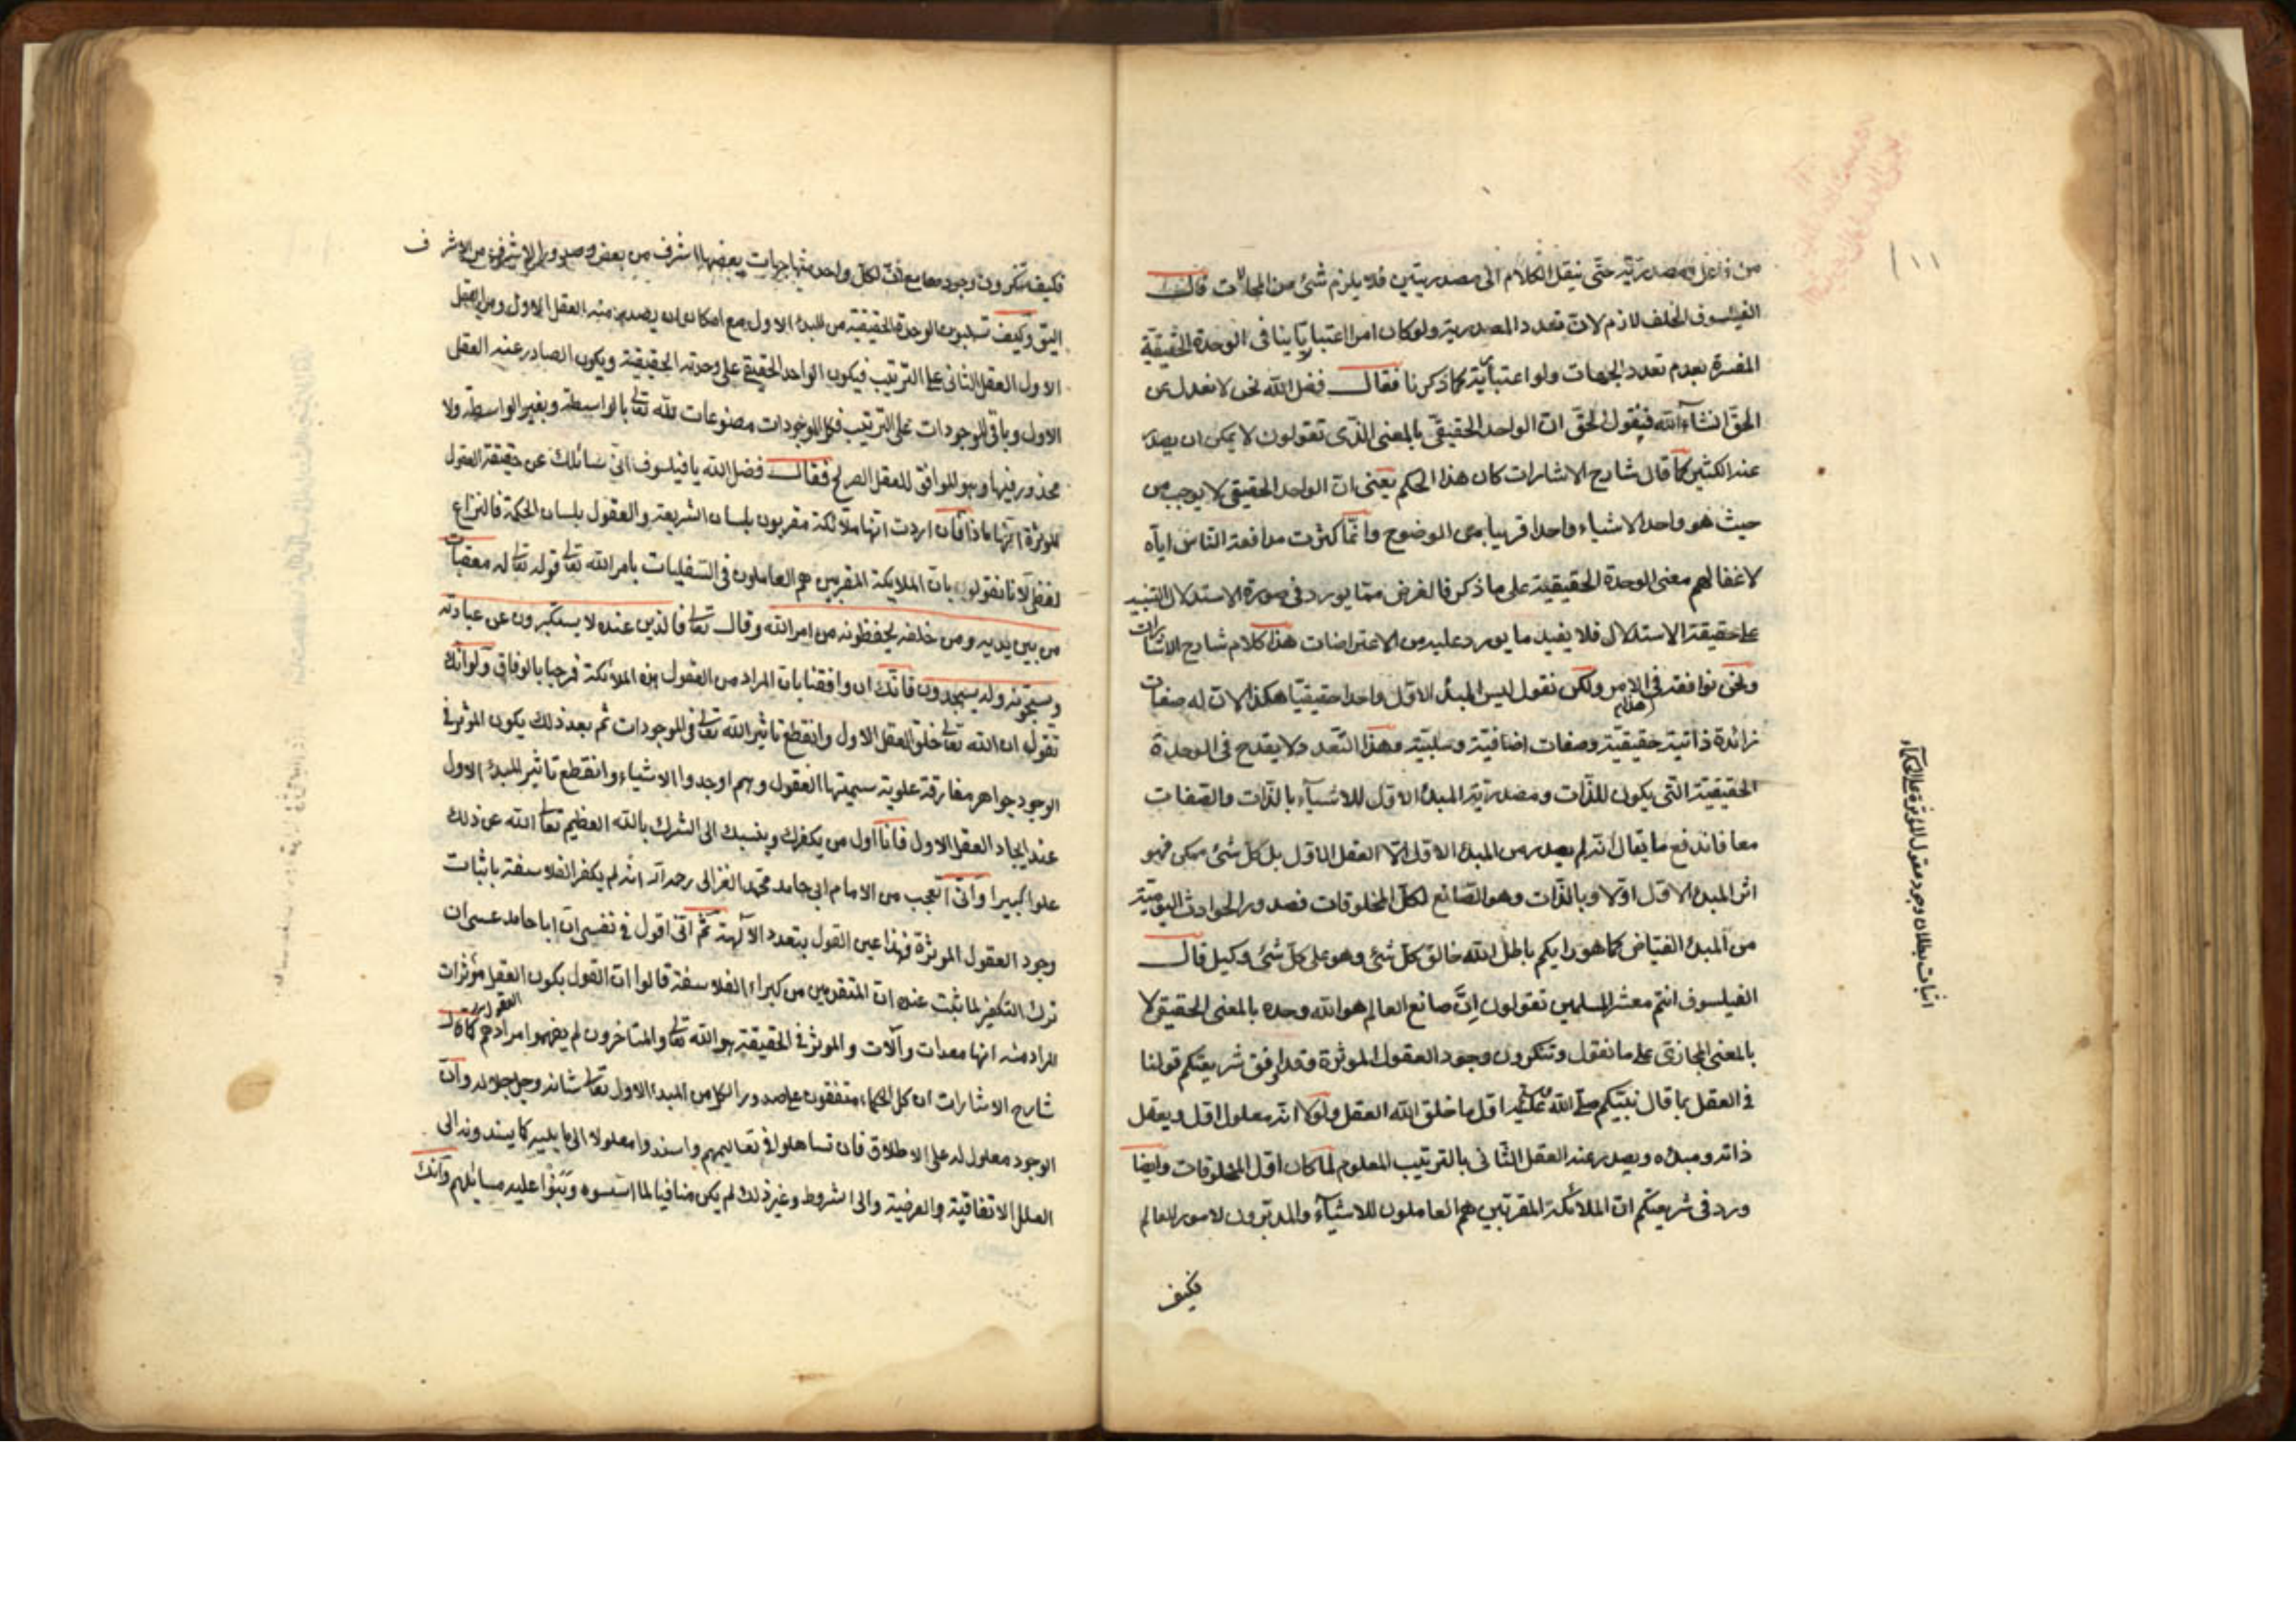 من فاعل ومصدريته حتى ينقل الكلام الى مصدريتين فلا يلزم شئ من المحالات قال
الفيلسوف الخلف لازم لان تعدد المصدرية ولو كان امرا اعتباريا ينافى الوحدة الحقيقية
المفسرة بعدم تعدد الجهات ولو اعتبارية كما ذكرنا فقال فضل الله نحن لا نعدل عن
الحق انشاء الله فيقول الحق ان الواحد الحقيقى بالمعنى الذى تقولون لا يمكن ان يصدر
عنه الكثير كما قال شارح الاشارات كان هذا الحكم يعنى ان الواحد الحقيقى لا يوجب من
حيث هو واحد الا شيأ واحدا قريبا من الوضوح وانما كثرت مدافعة الناس اياه
لاغفالهم معنى الوحدة الحقيقية على ما ذكر فالغرض مما يورد فى صورة الاستدلال التنبيه
على حقيقة الاستدلال فلا يفيد ما يورد عليه من الاعتراضات هذا كلام شارح الاشارات
ونحن نوافقه فى هذا الامر ولكن نقول ليس المبدأ الاول واحدا حقيقيا هكذا لان له صفات
زائدة ذاتية حقيقية وصفات اضافية وسلبية وهذا التعدد لا يقدح فى الوحدة
الحقيقية التى يكون للذات ومصدرية المبدأ الاول للاشيآء بالذات والصفات
معا فاندفع ما يقال انه لم يصدر من المبدأ الاول الا العقل الاول بل كل شئ ممكن فهو
اثر المبدأ الاول اولا وبالذات وهو الصانع لكل المخلوقات فصدور الحوادث اليومية
من المبدأ الفياض كما هو رايكم باطل الله خالق كل شئ وهو على كل شئ وكيل قال
الفيلسوف انتم معشر المسلمين تقولون ان صانع العالم هو الله وحده بالمعنى الحقيقى لا
بالمعنى المجازى على ما نقول وتنكرون وجود العقول الموثرة وقد وافق شريعتكم قولنا
فى العقل بما قال نبيكم صلى الله عليه اول ما خلق الله العقل ولولا انه معلول اول ويعقل
ذاته ومبدأه ويصدر عنه العقل الثانى بالترتيب المعلوم لما كان اول المخلوقات وايضا
ورد فى شريعتكم ان الملائكة المقربين هم العاملون للاشيآء والمدبرون لامور العالم
فكيف
اثبات بطلان وجود عقول المؤثرة على الحكمآء
١١١
فكيف تنكرون وجودها مع ان لكل واحد منها جهات بعضها اشرف من بعض وصدور الاشرف من الاشرف
اليق وكيف تسلبون الوحدة الحقيقية من المبدء الاول مع امكان ان يصدر منه العقل الاول ومن العقل
الاول العقل الثانى على الترتيب فيكون الواحد الحقيقى على وحدته الحقيقية ويكون الصادر عنه العقل
الاول وباقى الموجودات على الترتيب فكل الموجودات مصنوعات لله تعالى بالواسطة وبغير الواسطة ولا
محذور فيها وهو الموافق للعقل الصريح فقال فضل الله يا فيلسوف انى سائلك عن حقيقة العقول
الموثرة انها ماذا فان اردت انها ملائكة مقربون بلسان الشريعة والعقول بلسان الحكمة فالنزاع
لفظى لانا نقول بان الملايكة المقربين هم العاملون فى السفليات بامر الله تعالى قوله تعالى له معقبات
من بين يديه ومن خلفه يحفظونه من امر الله وقال تعالى فالذين عنده لا يستكبرون عن عبادته
ويسبحونه وله يسجدون فانك ان وافقتنا بان المراد من العقول هذه الملائكة فمرحبا بالوفاق ولو انك
تقول ان الله تعالى خلق العقل الاول وانقطع تاثير الله تعالى فى الموجودات ثم بعد ذلك يكون الموثر فى
الوجود جواهر مفارقة علوية سميتها العقول وهم اوجدوا الاشياء وانقطع تاثير المبدء الاول
عند ايجاد العقل الاول فانا اول من يكفرك وينسبك الى الشرك بالله العظيم تعالى الله عن ذلك
علوا كبيرا وانى اتعجب من الامام ابى حامد محمد الغزالى رحمه الله انه لم يكفر الفلاسفة باثبات
وجود العقول الموثرة فهذا عين القول بتعدد الآلهة ثم انى اقول فى نفسى ان ابا حامد عسى ان
ترك التكفير لما ثبت عنده ان المتقدمين من كبراء الفلاسفة قالوا ان القول بكون العقول مؤثرات
المراد منه انها معدات وآلات والموثر فى الحقيقة هو الله تعالى والمتاخرون لم يفهموا مرادهم كما قال
شارح الاشارات ان كل الحكماء متفقون على صدور الكل من المبدء الاول تعالى شانه وجل جلاله وان
الوجود معلول له على الاطلاق فان تساهلوا فى تعاليمهم واسندوا معلولا الى ما يليه كما يسندونه الى
العلل الاتفاقية والعرضية والى الشروط وغير ذلك لم يكن منافيا لما اسسوه وبنوا عليه مسائلهم وانك